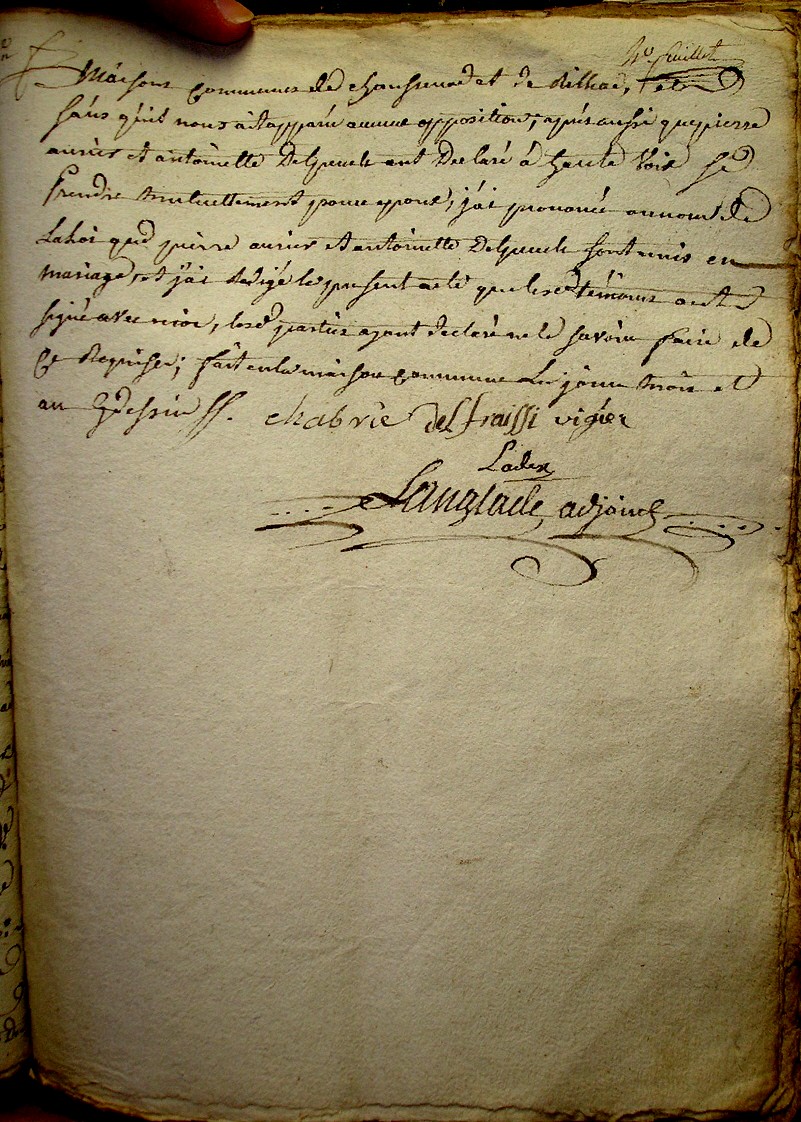 4e feuillet
Maisons communes de chaussenac et de Rilhac, et
sans qu'il nous ait apparu aucune opposition; après aussi que pierre
auries et antoinette Delpeuch ont Declaré à haute voix se
prendre mutuellement pour epoux, j'ai prononcé au nom de
La Loi que pierre auries et antoinette Delpeuch sont unis en
mariage, et j'ai redigé le present acte que les d. témoins ont
signé avec moi, les d. parties ayant declaré ne le savoir faire de
ce Requises; fait en la maison commune Les jour mois et
an
chabrie delfraissi vigier
Langlade adjoint